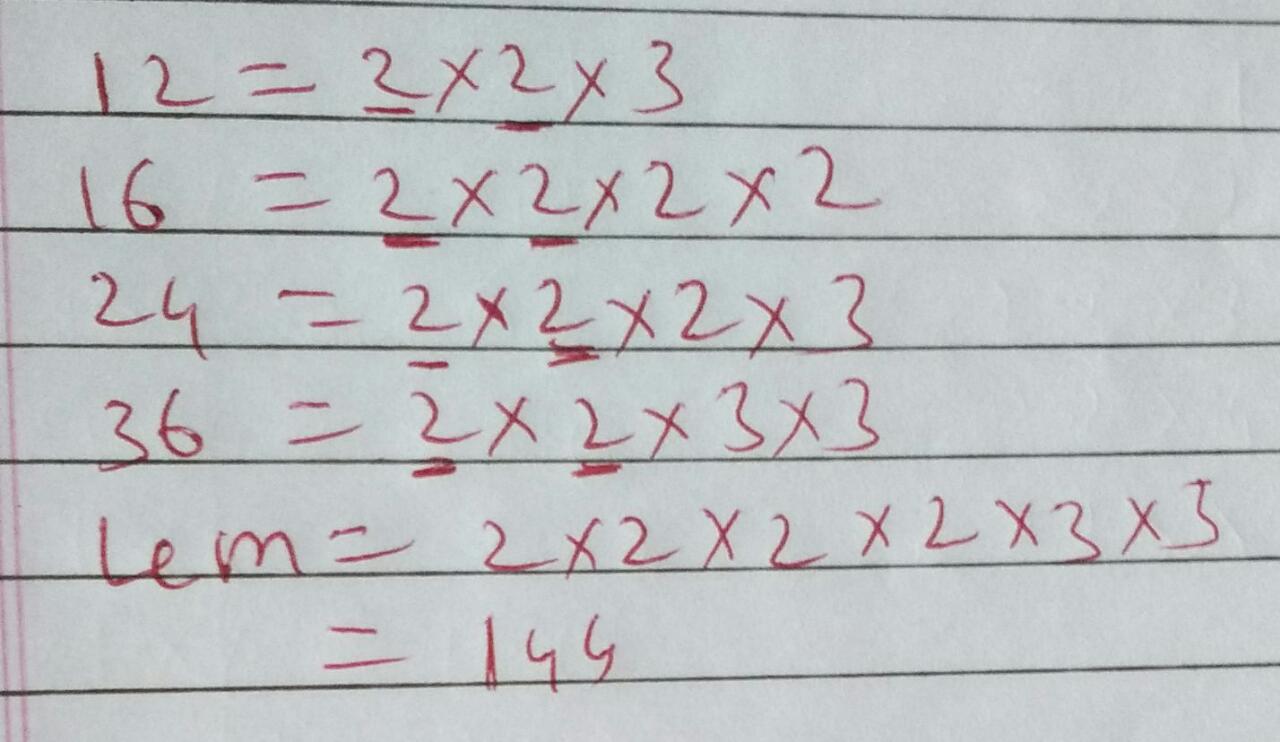 12 = 2 × 2 × 3
16 = 2 × 2 × 2 × 2
24 = 2 × 2 × 2 × 3
36 = 2 × 2 × 3 × 3
Lcm = 2 × 2 × 2 × 2 × 3 × 3
= 144